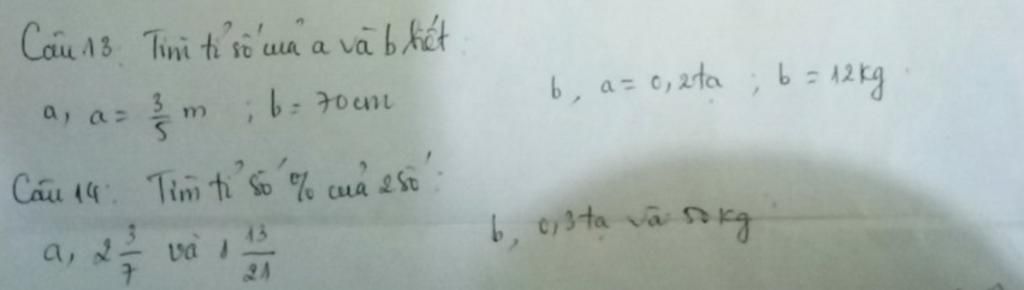 Câu 13. Tìm tỉ số của a và b biết
a, a = 3/5 m ; b = 70cm
b, a = 0,2 tạ ; b = 12kg
Câu 14: Tìm tỉ số % của 2 số:
a, 2 3/7 và 1 13/21
b, 0,3 tạ và 50kg